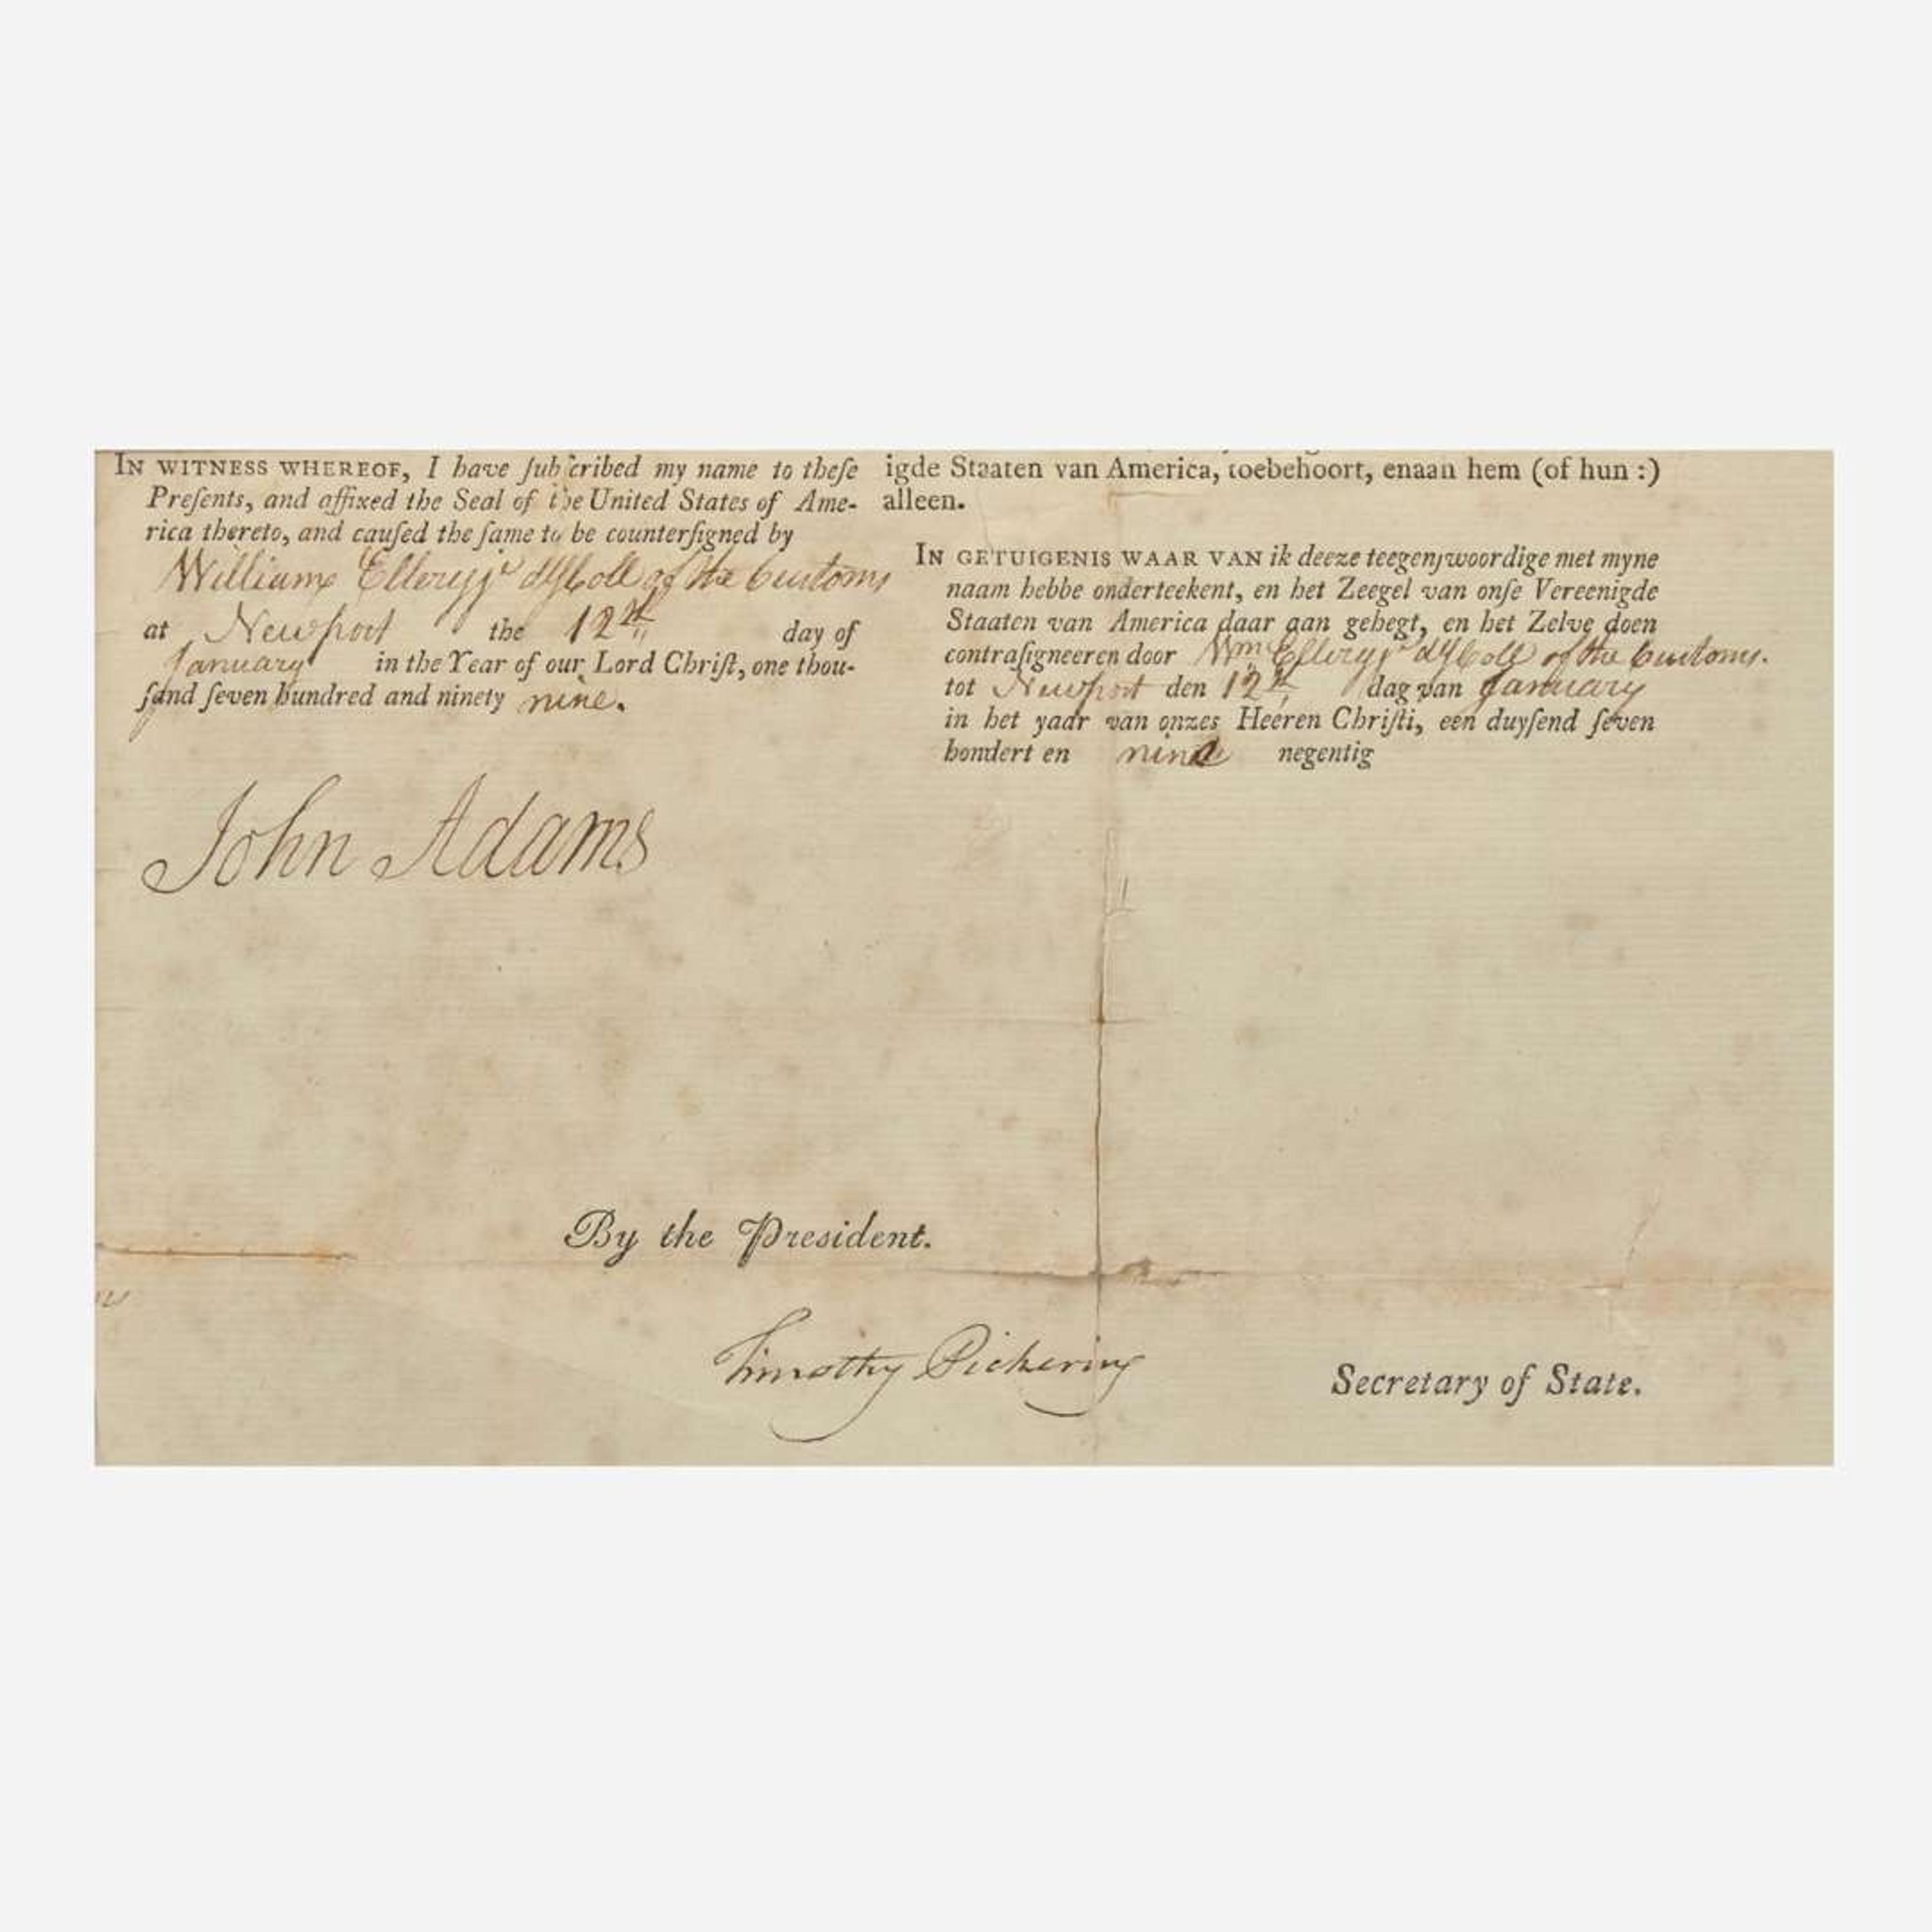 IN WITNESS WHEREOF, I have ſubſcribed my name to theſe
Preſents, and affixed the Seal of the United States of Ame-
rica thereto, and cauſed the ſame to be counterſigned by
William Ellery jr dy Coll of the Customs
at Newport the 12th day of
January in the Year of our Lord Chriſt, one thou-
ſand ſeven hundred and ninety nine.
John Adams
igde Staaten van America, toebehoort, enaan hem (of hun :)
alleen.
IN GETUIGENIS WAAR VAN ik deeze teegenſwoordige met myne
naam hebbe onderteekent, en het Zeegel van onſe Vereenigde
Staaten van America daar aan gehegt, en het Zelve doen
contraſigneeren door Wm Ellery jr dy Coll of the Customs.
tot Newport den 12th dag van January
in het yaar van onzes Heeren Chriſti, een duyſend ſeven
hondert en nine negentig
By the President.
Timothy Pickering
Secretary of State.